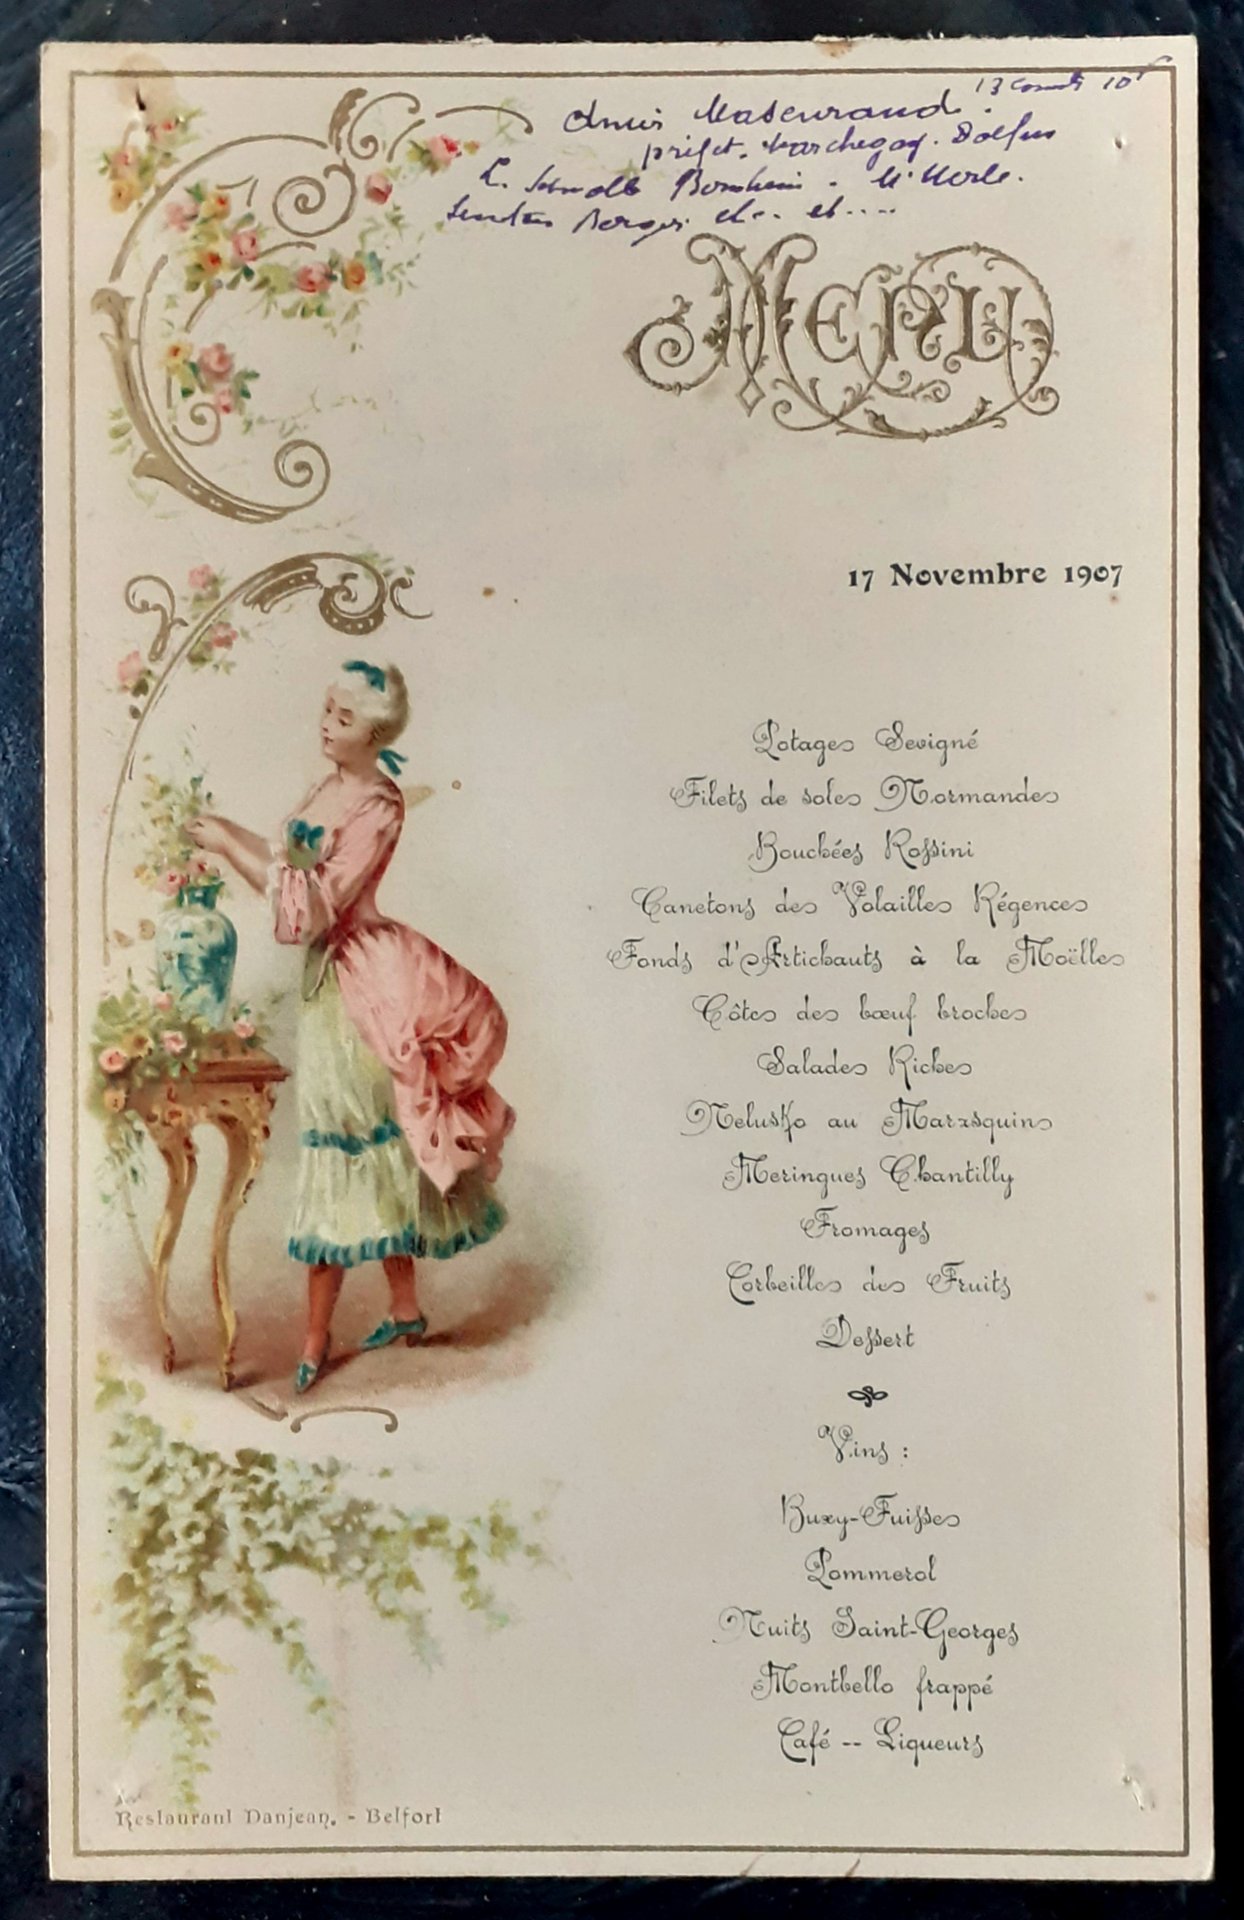 13 10
Mascuraud.
préfet.
L. Schwob
Berger et... et....
MENU
17 Novembre 1907
Potages Sevigné
Filets de soles Normandes
Bouchées Rossini
Canetons des Volailles Régences
Fonds d'Artichauts à la Moëlles
Côtes des bœuf broches
Salades Riches
Nelusko au Marasquins
Meringues Chantilly
Fromages
Corbeilles des Fruits
Dessert
Vins :
Buxy-Fuisses
Pommerol
Nuits Saint-Georges
Montbello frappé
Café -- Liqueurs
Restaurant Danjean. - Belfort